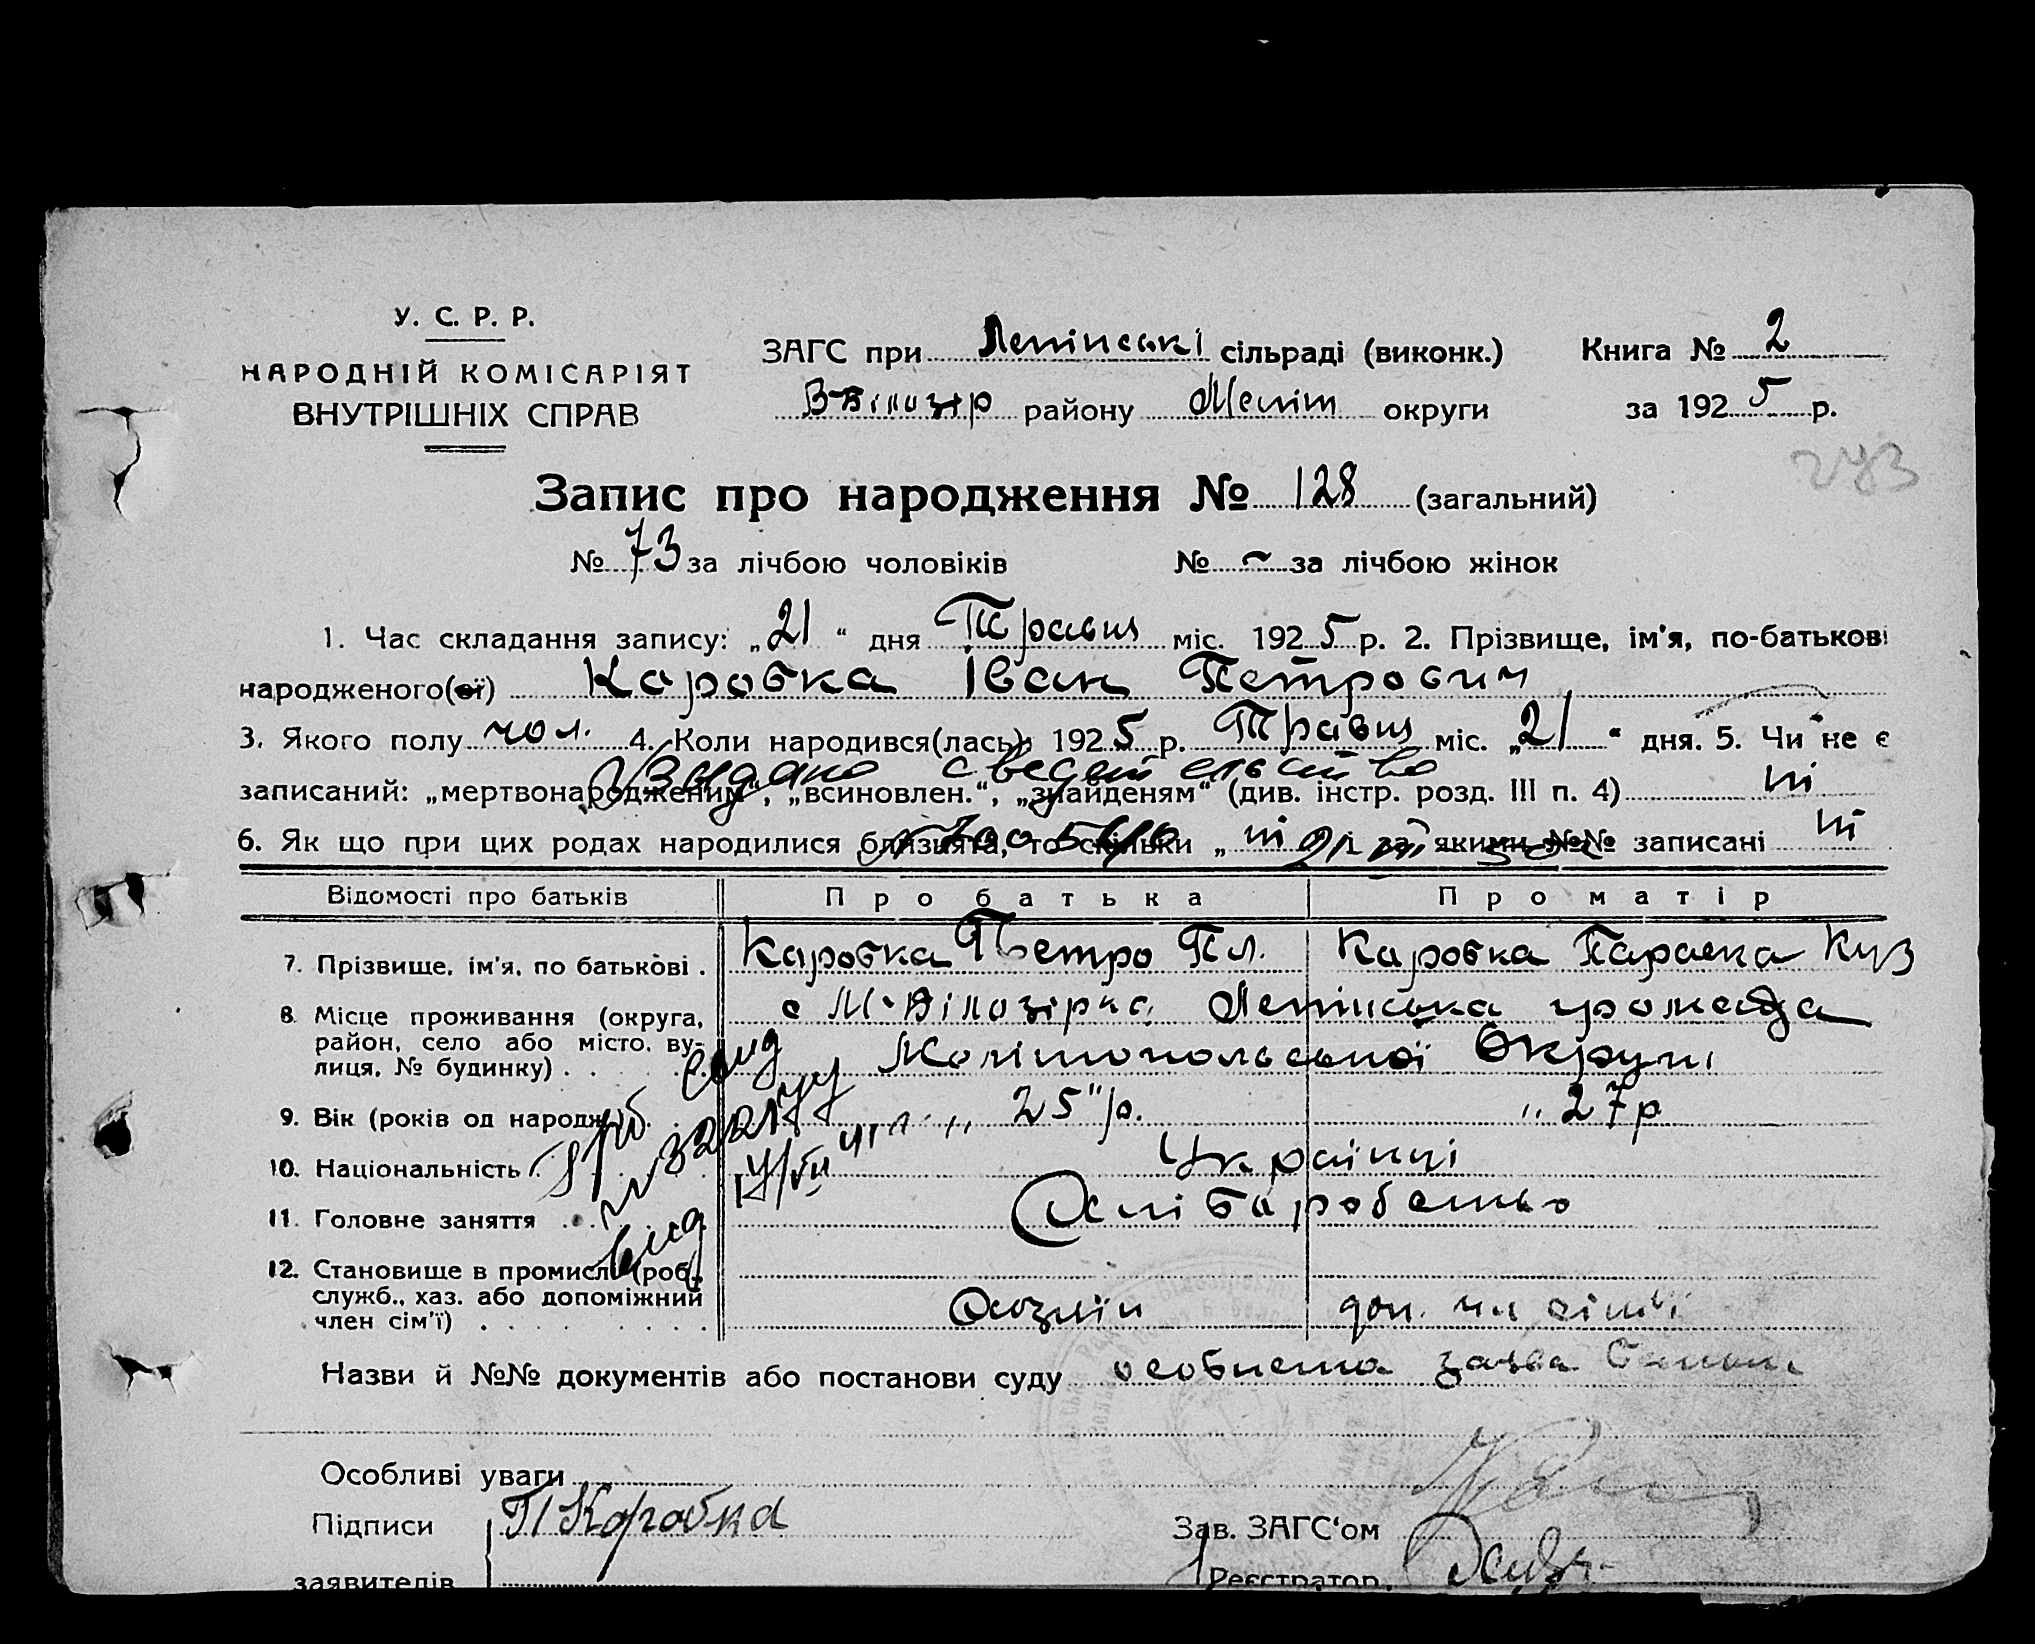 У. С. Р. Р.
НАРОДНІЙ КОМІСАРІЯТ
ВНУТРІШНІХ СПРАВ
ЗАГС при Ленінські сільраді (виконк.)
В-Білозір району Меліт округи
Книга № 2
за 1925 р.
Запис про народження № 128 (загальний)
№ 73 за лічбою чоловіків № – за лічбою жінок
1. Час складання запису: „21“ дня Травня міс. 1925 р. 2. Прізвище, ім'я, по-батькові
народженого(ої) Каробка Іван Петрович
3. Якого полу чол. 4. Коли народився(лась): 1925 р. Травня міс. „21“ дня. 5. Чи не є
Выдано сведетельство
записаний: „мертвонародженим“, „всиновлен.“, „знайденям“ (див. інстр. розд. III п. 4) ні
6. Як що при цих родах народилися близнята, то скільки „ ні і за якими №№ записані ні
Відомості про батьків Про батька Про матір
7. Прізвище, ім'я, по батькові . Каробка Петро Пл. Каробка Параска Куз
8. Місце проживання (округа, район, село або місто, вулиця, № будинку) с М-Білозірка Ленінська громада
Мелітопольської Округи
9. Вік (років од народж.) 25 р. 27 р
10. Національність Українці
11. Головне заняття Хліборобство
12. Становище в промислі (роб., служб., хаз. або допоміжний член сім'ї) Хазяїн доп. чл сім'ї
Назви й №№ документів або постанови суду особиста заява
Особливі уваги
Підписи П Коробка Зав. ЗАГС'ом
заявителів Реєстратор.